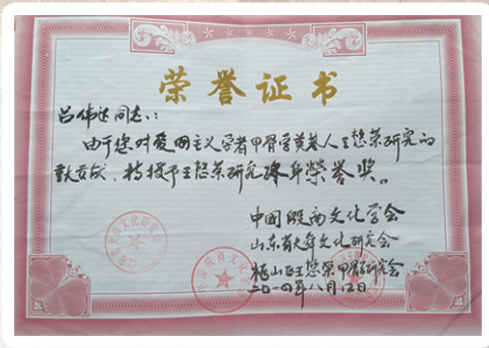 荣誉证书
吕伟达同志：
由于您对爱国主义学者甲骨学奠基人王懿荣研究的
贡献、特授予王懿荣研究终身荣誉奖。
中国殷商文化学会
山东省大舜文化研究会
福山区王懿荣甲骨学研究会
二〇一〇年八月12日